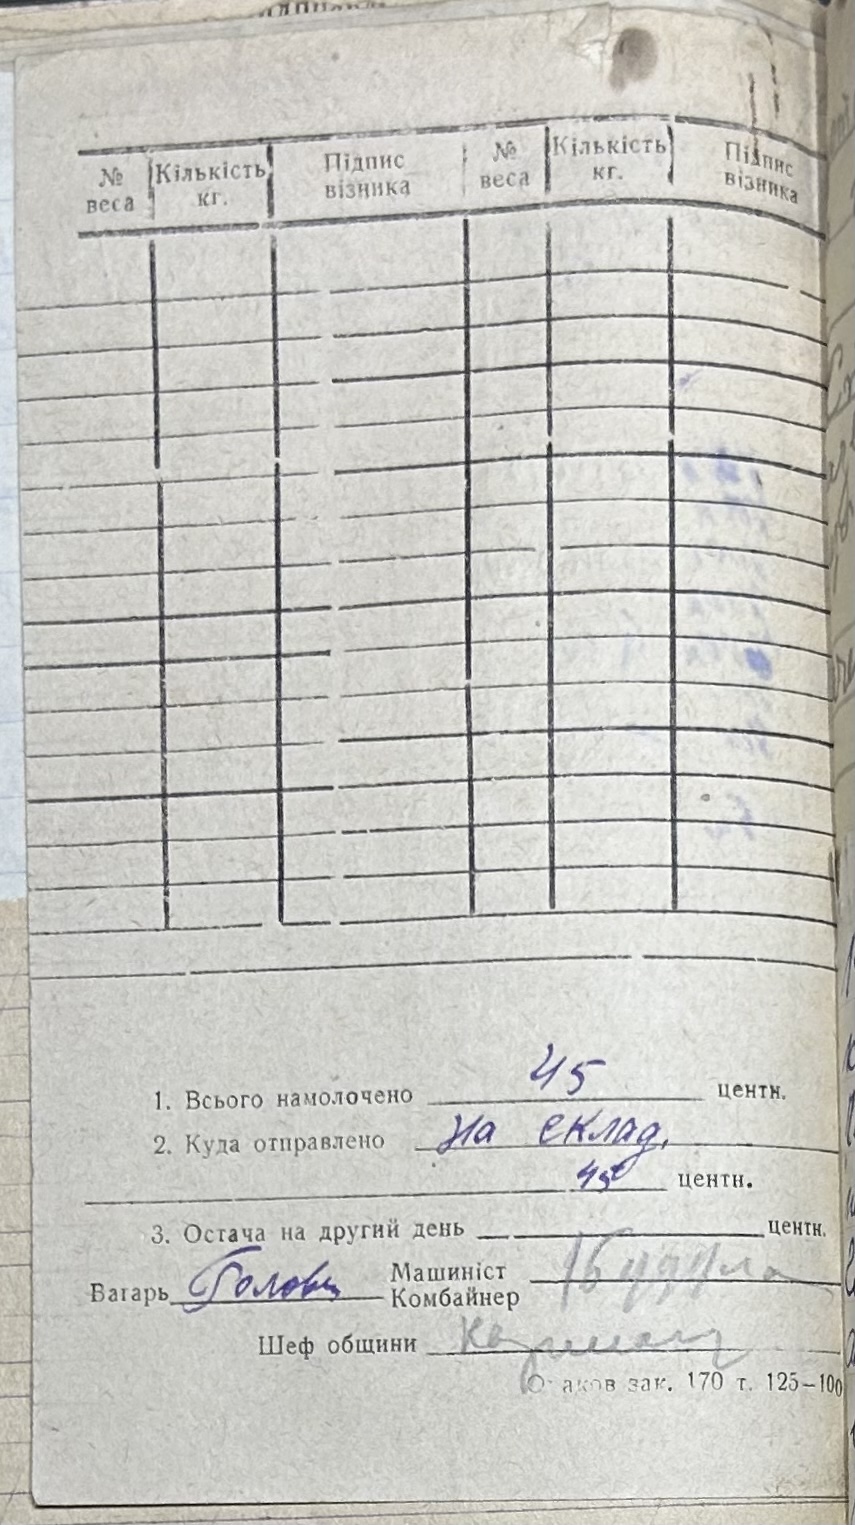 № веса Кількість кг. Підпис візника № веса Кількість кг. Підпис візника
1. Всього намолочено 45 центн.
2. Куда отправлено на склад,
45 центн.
3. Остача на другий день центн.
Вагарь Головч Машиніст
Комбайнер
Шеф общини
зак. 170 т. 125—100